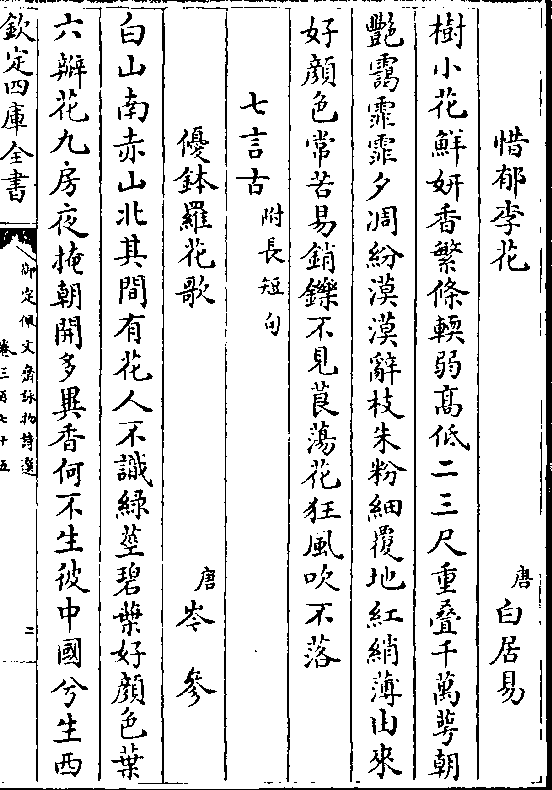 惜郁李花
唐 白居易
樹小花鮮妍香繁條輭弱髙低二三尺重疊千萬萼朝
艷靄霏霏夕凋紛漠漠辭枝朱粉細覆地紅綃薄由來
好顔色常苦易銷鑠不見莨蕩花狂風吹不落
七言古 附長短句
優鉢羅花歌
唐 岑參
白山南赤山北其間有花人不識綠莖碧葉好顔色葉
六瓣花九房夜掩朝開多異香何不生彼中國兮生西
欽定四庫全書
御定佩文齋詠物詩選
卷三百七十五
二